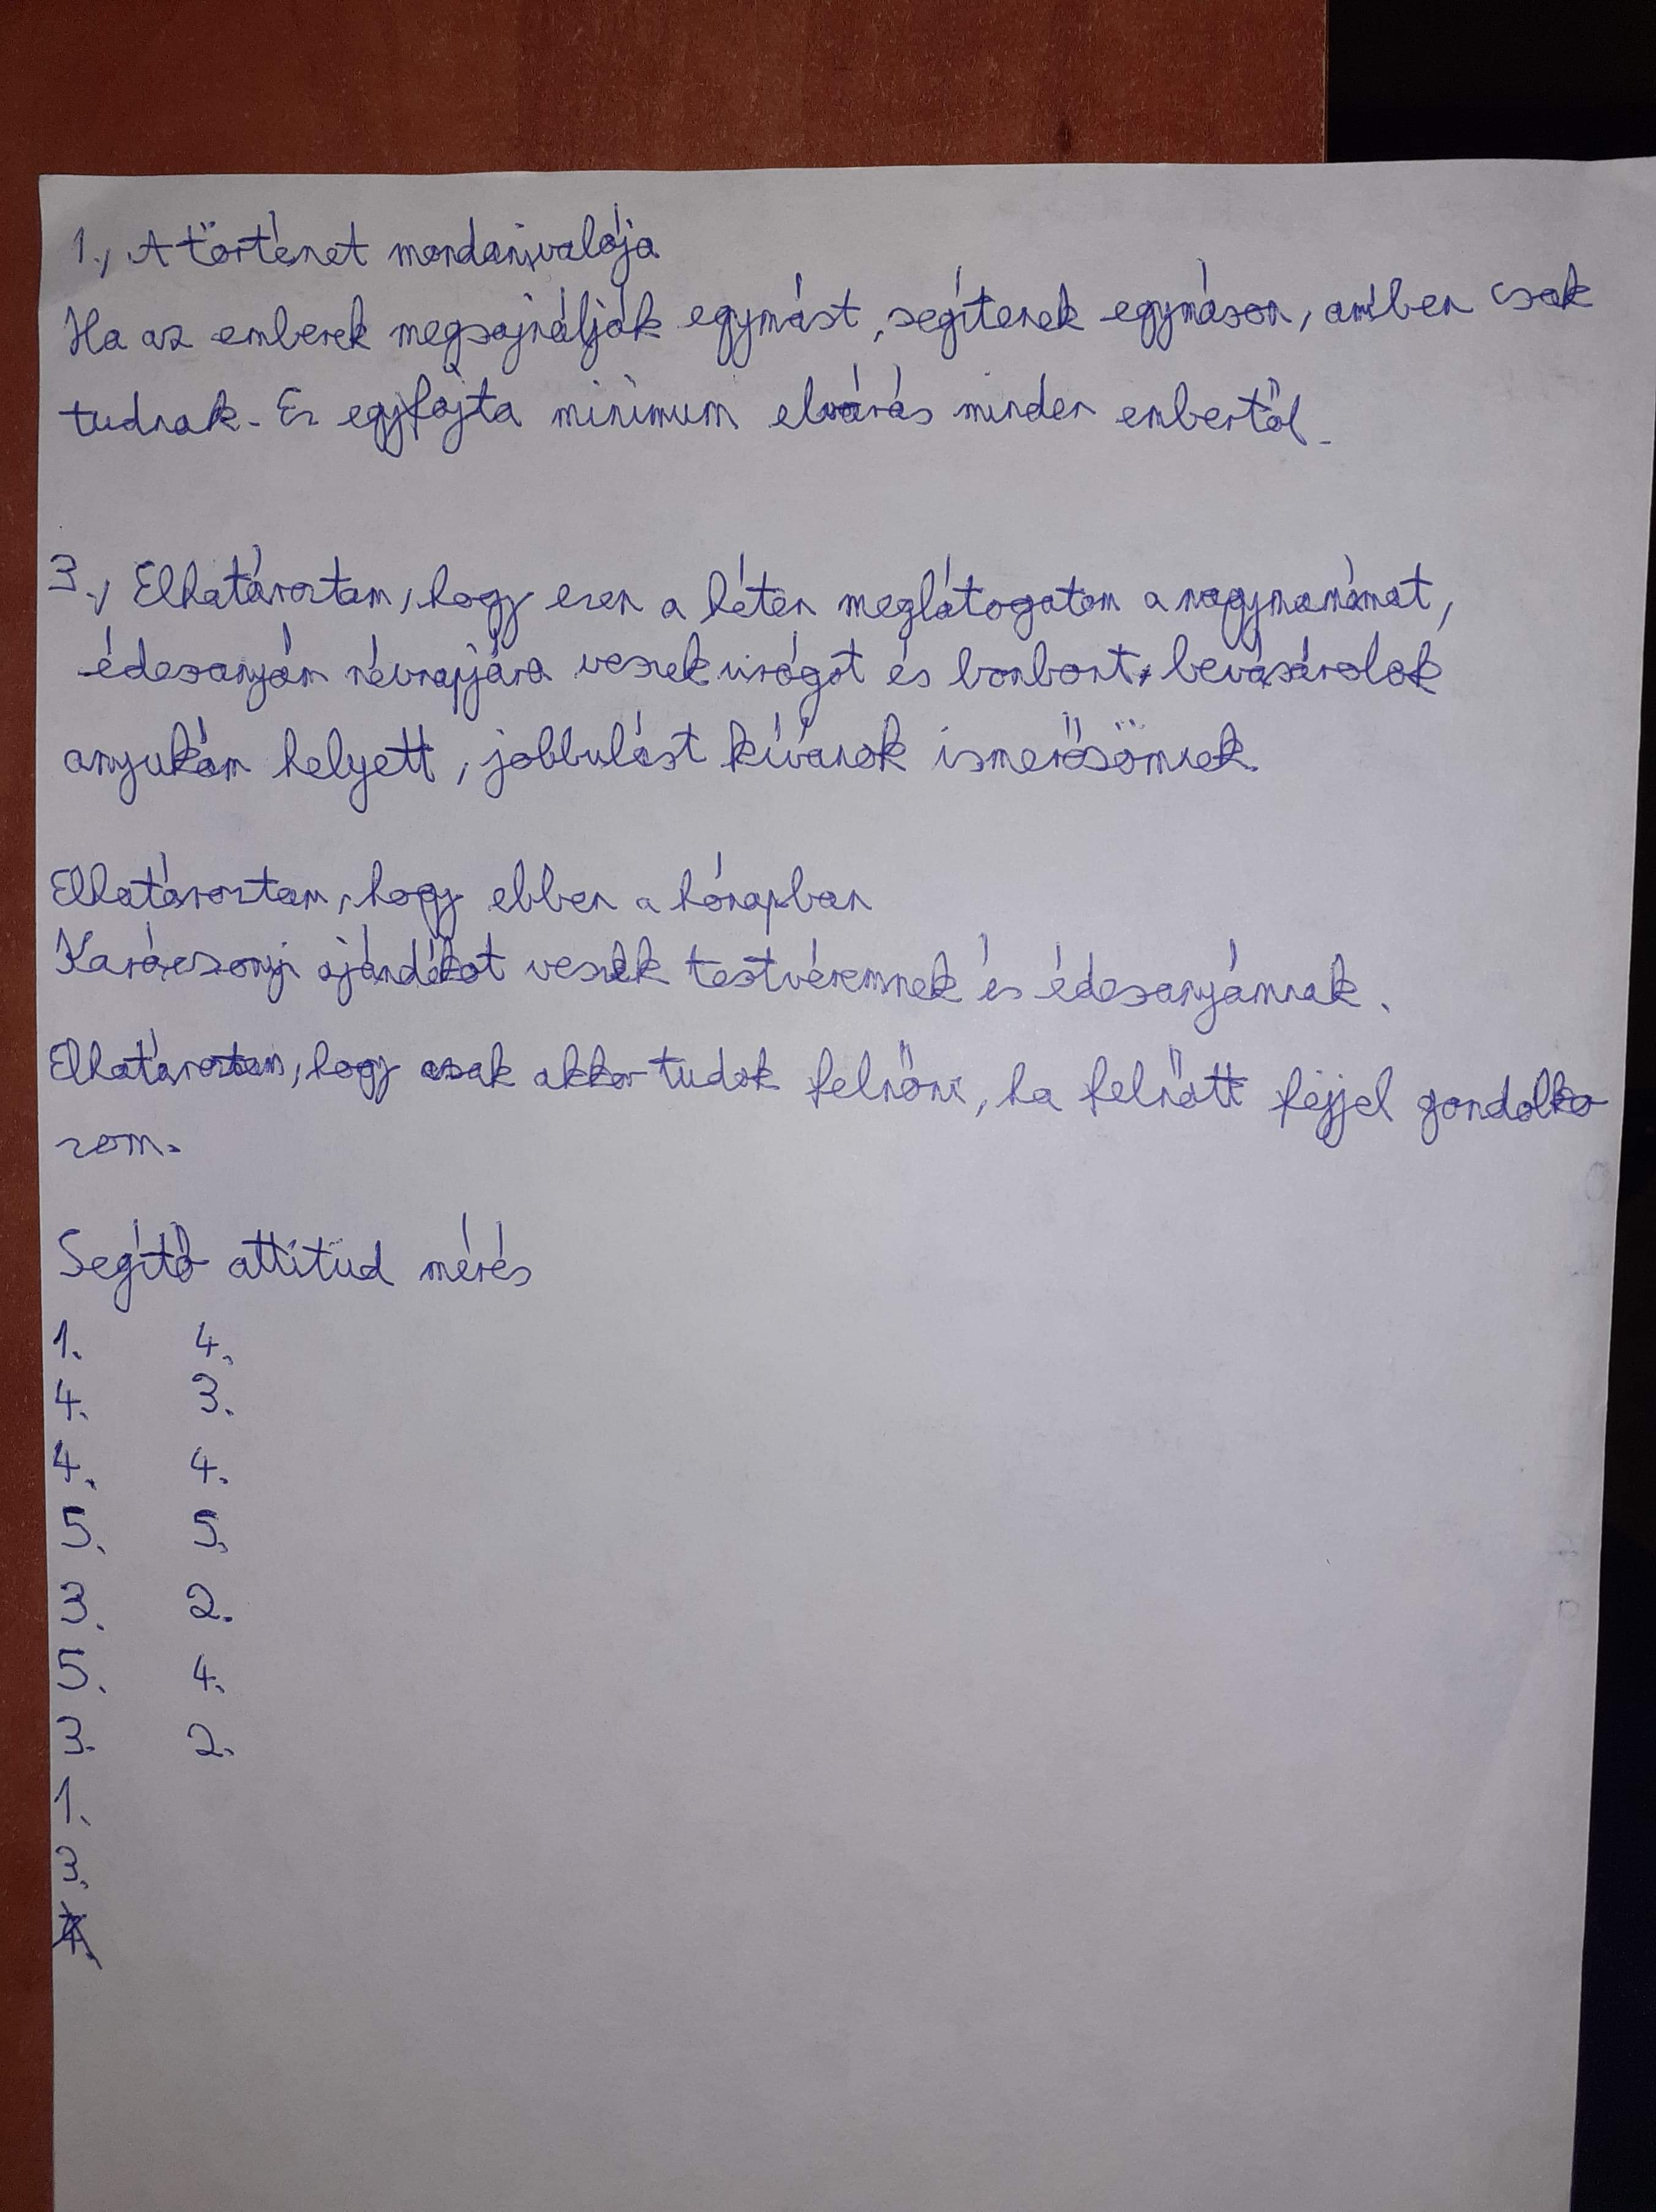 1., A történet mondanivalója
Ha az emberek megsajnálják egymást, segítenek egymáson, amiben csak
tudnak. Ez egyfajta minimum elvárás minden embertől.
3., Elhatároztam, hogy ezen a héten meglátogatom a nagymamámat,
édesanyám névnapjára veszek virágot és bonbont, bevásárolok
anyukám helyett, jobbulást kívánok ismerősömnek.
Elhatároztam, hogy ebben a hónapban
Karácsonyi ajándékot veszek testvéremnek és édesanyámnak.
Elhatároztam, hogy csak akkor tudok felnőni, ha felnőtt fejjel gondolko
zom.
Segítő attitűd mérés
1. 4.
4. 3.
4. 4.
5. 5.
3. 2.
5. 4.
3. 2.
1.
3.